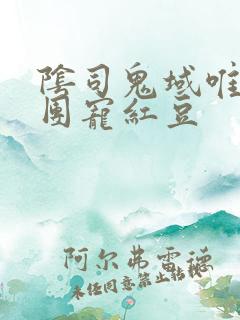 陰司鬼域唯
團寵紅豆
阿尔弗雷德
未经同意禁止转载